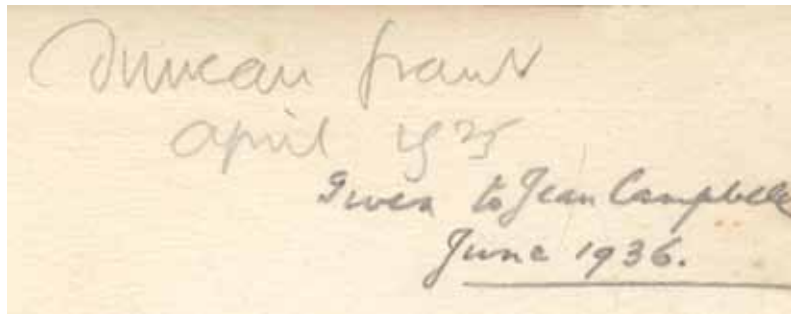 Duncan Grant
April 1925
Given to Jean Campbell
June 1936.